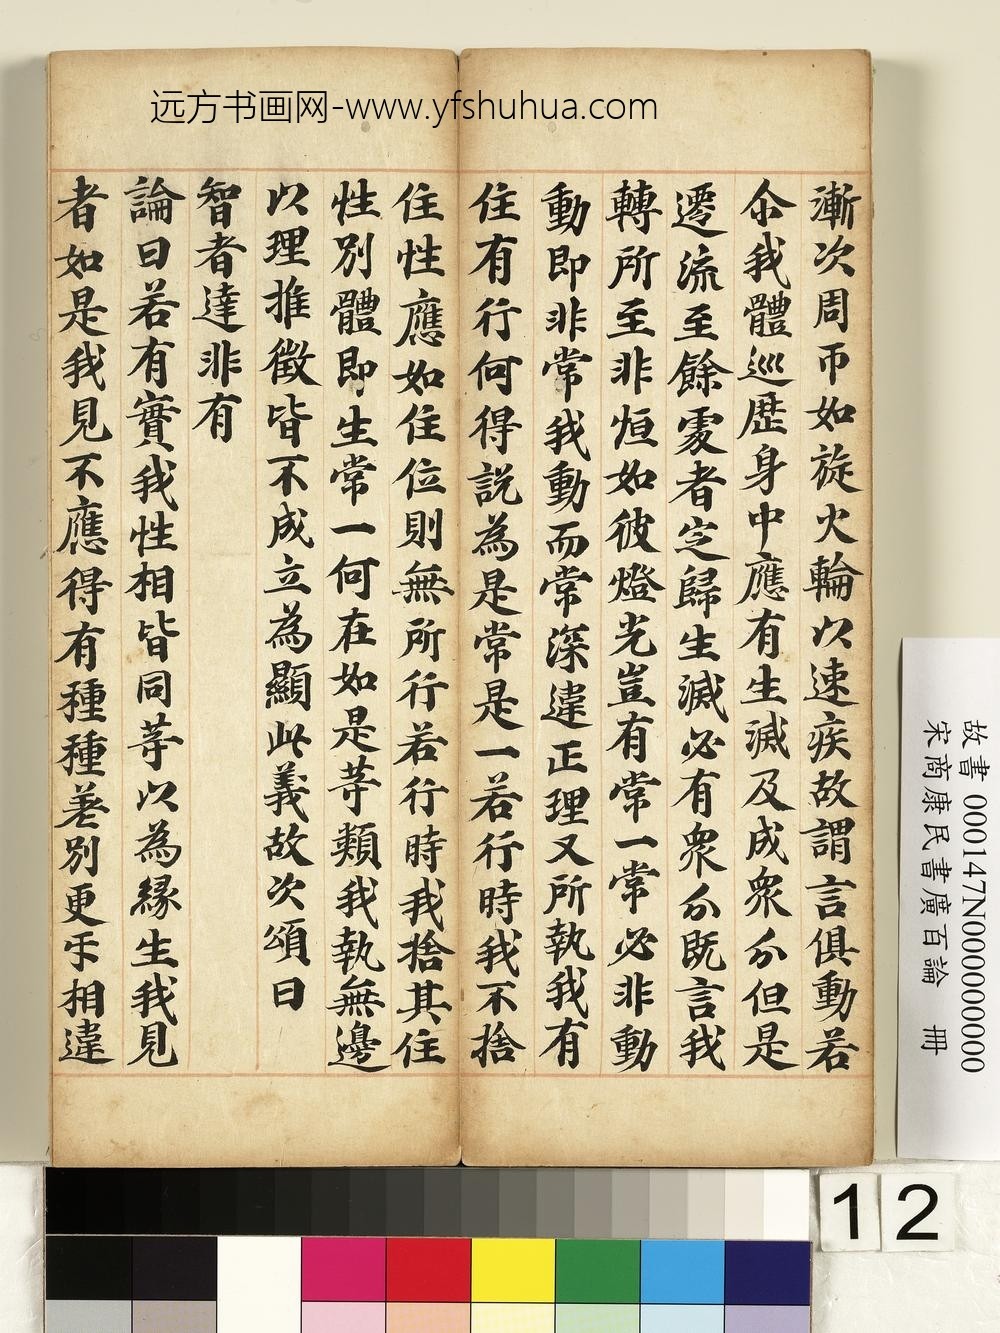 远方书画网-www.yfshuhua.com
漸次周帀如旋火輪以速疾故謂言俱動若
尒我體巡歷身中應有生滅及成衆分但是
遷流至餘處者定歸生滅必有衆分既言我
轉所至非恒如彼燈光豈有常一常必非動
動即非常我動而常深違正理又所執我有
住有行何得説為是常是一若行時我不捨
住性應如住位則無所行若行時我捨其住
性別體即生常一何在如是䓁類我執無邊
以理推徵皆不成立為顯此義故次頌曰
智者達非有
論曰若有實我性相皆同䓁以為緣生我見
者如是我見不應得有種種差別更乐相違
故書 000147N000000000
宋商康民書廣百論 冊
12